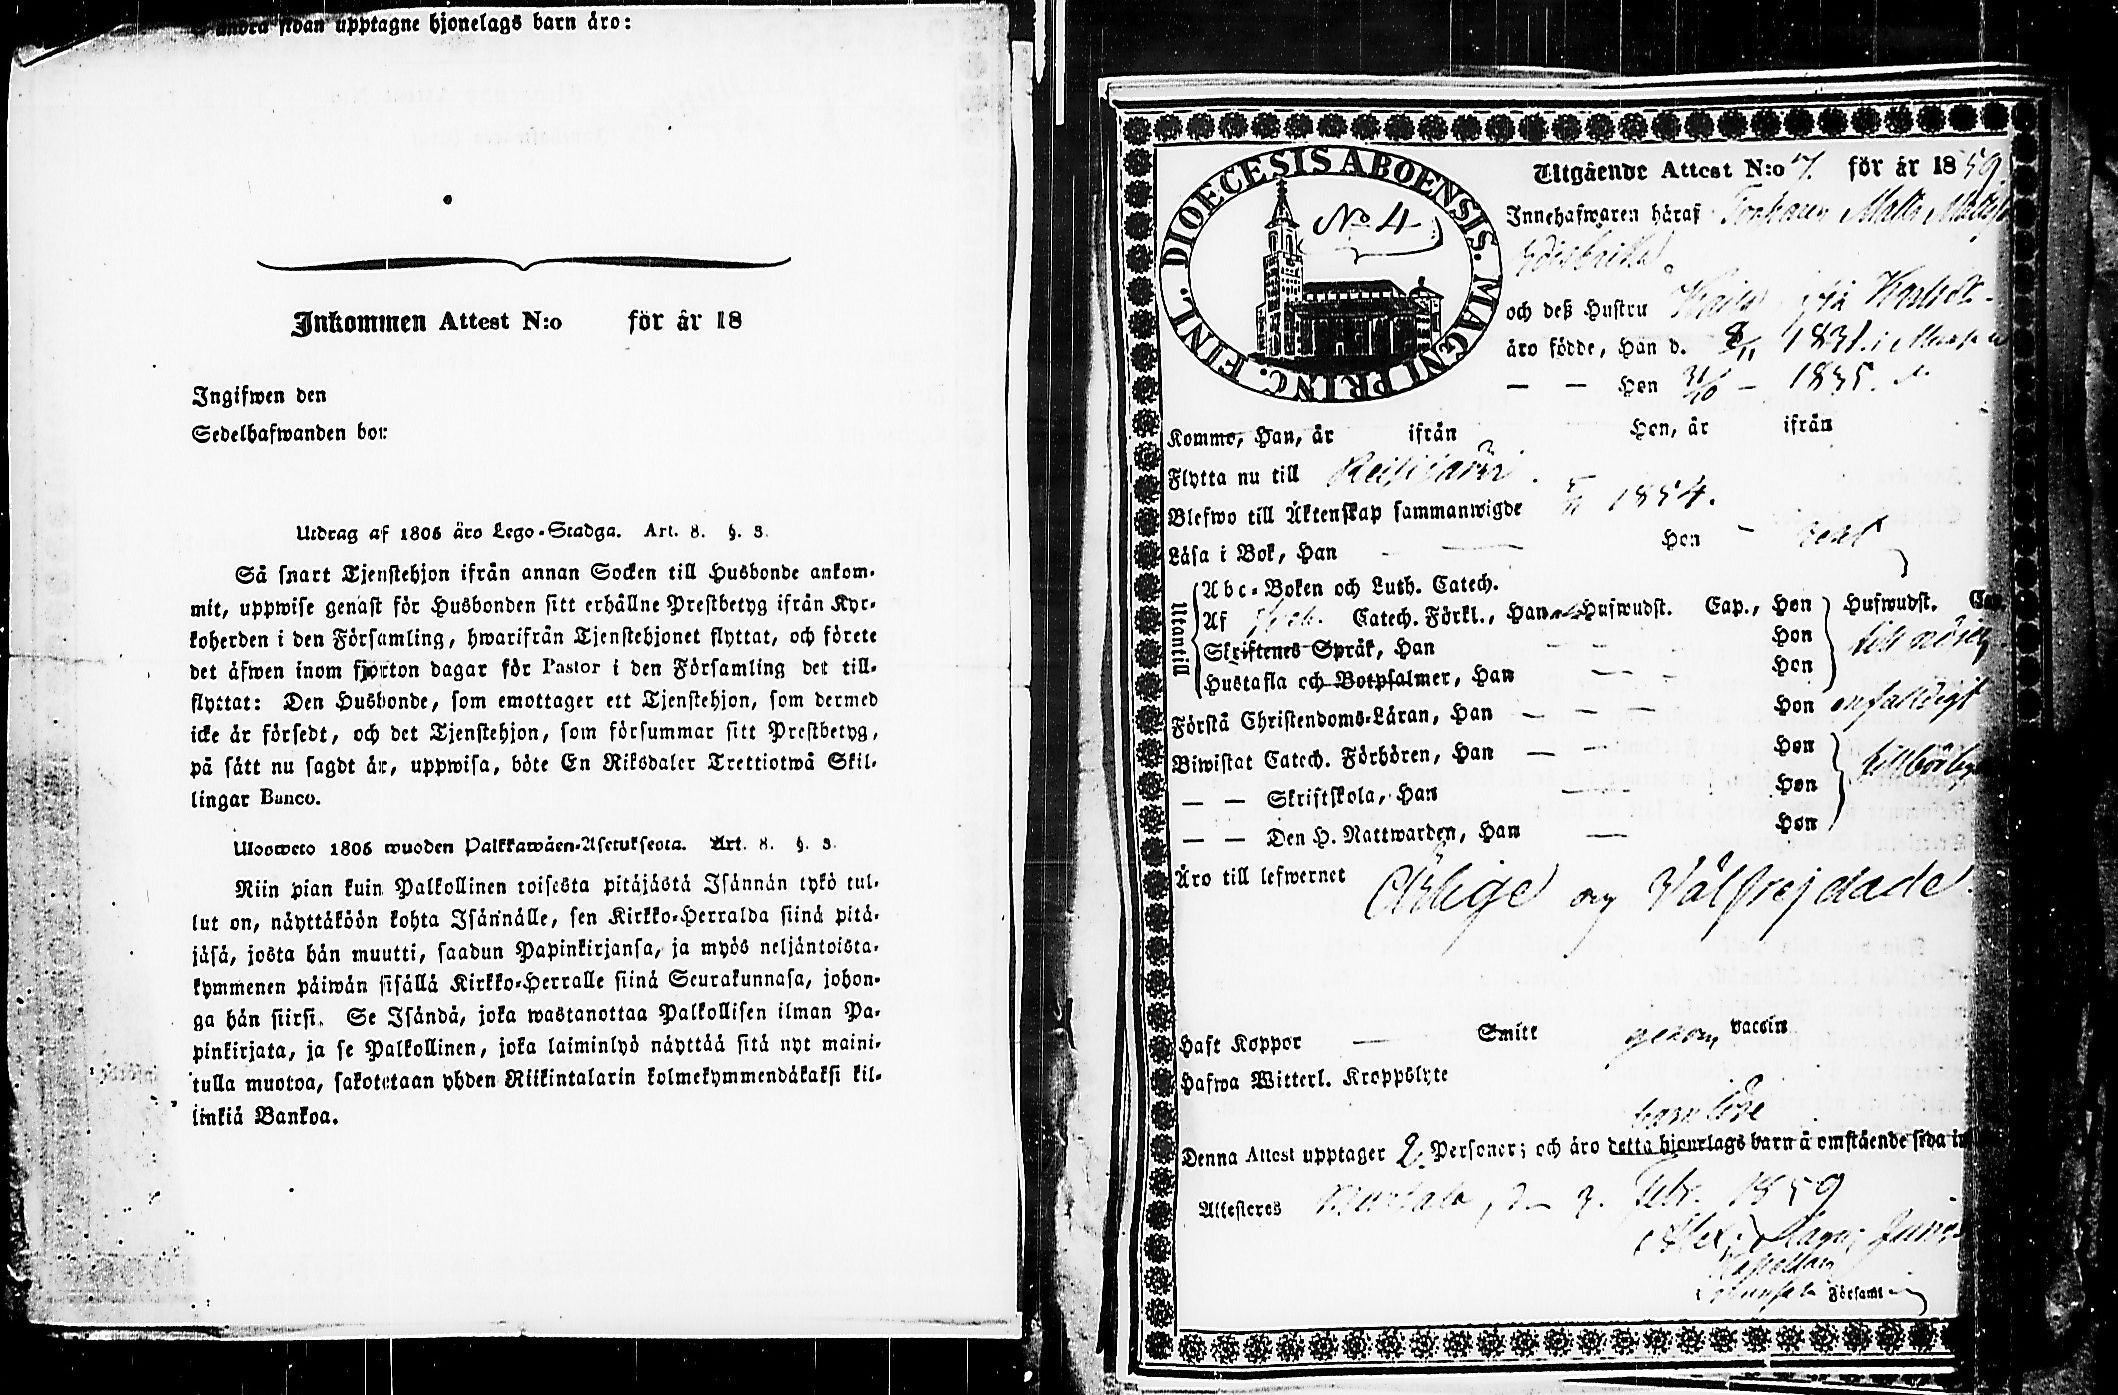 andra sidan upptagne hjonelags barn äro:
Inkommen Attest N:o för år 18
Ingifwen den
Sedelhafwanden bor:
Utdrag af 1805 åro Lego-Stadga. Art. 8. §. 3.
Så snart Tjenstehjon ifrån annan Socken till Husbonde ankom-
mit, uppwise genast för Husbonden sitt erhållne Prestbetyg ifrån Kyr-
koherden i den Församling, hwarifrån Tjenstehjonet flyttat, och förete
det äfwen inom fjorton dagar för Pastor i den Församling det till-
flyttat: Den Husbonde, som emottager ett Tjenstehjon, som dermed
icke är försedt, och det Tjenstehjon, som försummar sitt Prestbetyg,
på sätt nu sagdt är, uppwisa, böte En Riksdaler Trettiotwå Skil-
lingar Banco.
Ulosweto 1805 wuoden Palkkawäen-Asetuksesta. Art. 8. §. 3.
Niin pian kuin Palkollinen toisesta pitäjästä Isännän tykö tul-
lut on, näyttäköön kohta Isännälle, sen Kirkko-Herralda siinä pitä-
jäsä, josta hän muutti, saadun Papinkirjansa, ja myös neljäntoista-
kymmenen päiwän sisällä Kirkko-Herralle siinä Seurakunnasa, johon-
ga hän siirsi. Se Isändä, joka wastanottaa Palkollisen ilman Pa-
pinkirjata, ja se Palkollinen, joka laiminlyö näyttää sitä nyt maini-
tulla muotoa, sakotetaan yhden Riikintalarin kolmekymmendäkaksi kil-
linkiä Bankoa.
DIOECESIS ABOENSIS. MAGNI PRINC. FINL.
No 4
Utgående Attest N:o 7. för år 1859
Innehafwaren häraf Matts
och deß Hustru
äro födde, Han d. 8/11 1831. i
— — Hon 31/10 — 1835.
Komme, Han, år ifrån Hon, år ifrån
Flytta nu till Reisjärvi.
Blefwo till Äktenskap sammanwigde 1854.
Läsa i Bok, Han — — Hon —
Utantill
Abc-Boken och Luth. Catech.
Af Catech. Förkl., Han Hufwudst. Cap., Hon Hufwudst. Cap.
Skriftenes Språk, Han — — Hon
Hustafla och Botpsalmer, Han — — Hon
Förstå Christendoms-Läran, Han — — — Hon enfaldigt
Biwistat Catech. Förhören, Han — — Hon
— — Skriftskola, Han — — Hon
— — Den H. Nattwarden, Han — Hon
Äro till lefwernet Ärlige och Välfrejdade.
Haft Koppor — Smitt genom vaccin
Hafwa Witterl. Kroppslyte
barnlöse
Denna Attest upptager 2. Personer; och äro detta hjonelags barn å omstående sida
Attesteres d. 3. Febr. 1859
Kapellan
Församl